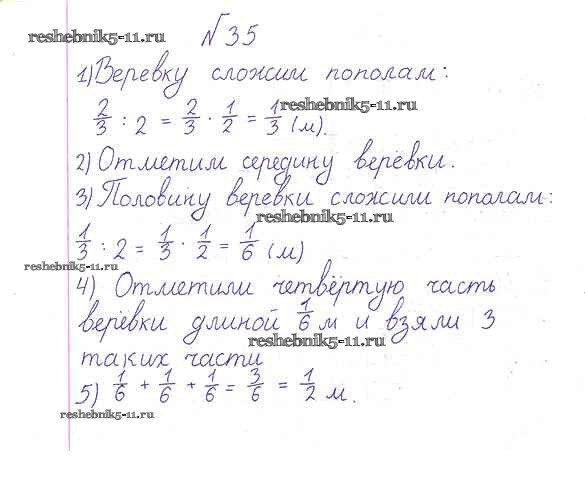 № 35
reshebnik5-11.ru
1) Веревку сложим пополам:
2/3 : 2 = 2/3 · 1/2 = 1/3 (м).
reshebnik5-11.ru
2) Отметим середину верёвки.
3) Половину верёвки сложили пополам:
reshebnik5-11.ru
1/3 : 2 = 1/3 · 1/2 = 1/6 (м)
reshebnik5-11.ru
4) Отметили четвёртую часть
верёвки длиной 1/6 м и взяли 3
reshebnik5-11.ru
таких части
5) 1/6 + 1/6 + 1/6 = 3/6 = 1/2 м.
reshebnik5-11.ru